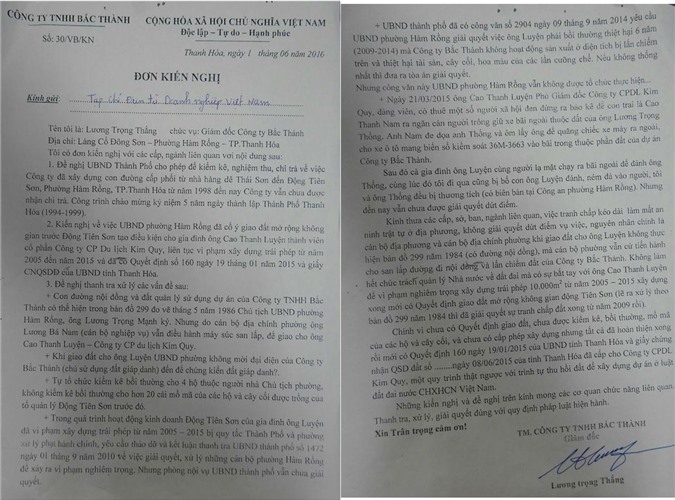 CÔNG TY TNHH BẮC THÀNH
Số: 30/VB/KN
CỘNG HÒA XÃ HỘI CHỦ NGHĨA VIỆT NAM
Độc lập – Tự do – Hạnh phúc
Thanh Hóa, ngày 1 tháng 06 năm 2016
ĐƠN KIẾN NGHỊ
Kính gửi: Tạp Chí Điện tử Doanh nghiệp Việt Nam
Tên tôi là: Lương Trọng Thắng chức vụ: Giám đốc Công ty Bắc Thành
Địa chỉ: Làng Cổ Đông Sơn – Phường Hàm Rồng – TP.Thanh Hóa
Tôi có đơn kiến nghị với các cấp, ngành liên quan với nội dung sau:
1. Đề nghị UBND Thành Phố cho phép để kiểm kê, nghiệm thu, chi trả về việc
Công ty đã xây dựng con đường cấp phối từ nhà hàng dê Thái Sơn đến Động Tiên
Sơn, Phường Hàm Rồng, TP.Thanh Hóa từ năm 1998 đến nay Công ty vẫn chưa được
nhận chi trả. Công trình chào mừng kỷ niệm 5 năm ngày thành lập Thành Phố Thanh
Hóa (1994-1999).
2. Kiến nghị về việc UBND phường Hàm Rồng đã cố ý giao đất mở rộng không
gian trước Động Tiên Sơn tạo điều kiện cho gia đình ông Cao Thanh Luyện thành viên
cổ phần Công ty CP Du lịch Kim Quy, liên tục vi phạm xây dựng trái phép từ năm
2005 đến năm 2015 và đã có Quyết định số 160 ngày 19 tháng 01 năm 2015 và giấy
CNQSDĐ của UBND tỉnh Thanh Hóa.
3. Đề nghị thanh tra xử lý các vấn đề sau:
+ Con đường nội đồng và đất quản lý sử dụng dự án của Công ty TNHH Bắc
Thành có thể hiện trong bản đồ 299 do vẽ tháng 5 năm 1986 Chủ tịch UBND phường
Hàm Rồng, ông Lương Trọng Mạnh ký. Nhưng do cán bộ địa chính phường ông
Lương Bá Nam (cán bộ nghiệp vụ) vẫn điều hành máy súc san lấp, để giao cho ông
Cao Thanh Luyện – Công ty CP du lịch Kim Quy.
+ Khi giao đất cho ông Luyện UBND phường không mời đại diện của Công ty
Bắc Thành (chủ sử dụng đất giáp danh) đến để chứng kiến đất giáp danh?.
+ Tự tổ chức kiểm kê bồi thường cho 4 hộ thuộc người nhà Chủ tịch phường,
không kiểm kê bồi thường cho hơn 20 cái mồ mã của các hộ và cây cối được trồng của
tổ quản lý Động Tiên Sơn trước đó.
+ Trong quá trình hoạt động kinh doanh Động Tiên Sơn của gia đình ông Luyện
đã vi phạm xây dựng trái phép từ năm 2005 – 2015 bị quy tắc Thành Phố và phường
xử lý phạt hành chính, yêu cầu tháo dỡ và kết luận thanh tra UBND thành phố số 1472
ngày 01 tháng 9 năm 2010 về việc giải quyết, xử lý những cán bộ phường Hàm Rồng
để xảy ra vi phạm nghiêm trọng. Nhưng phòng nội vụ UBND Thành phố vẫn chưa giải
quyết.
+ UBND thành phố đã có công văn số 2904 ngày 09 tháng 9 năm 2014 yêu cầu
UBND phường Hàm Rồng giải quyết việc ông Luyện phải bồi thường thiệt hại 6 năm
(2009-2014) mà Công ty Bắc Thành không hoạt động sản xuất ở diện tích bị lấn chiếm
trên và thiệt hại tài sản, cây cối, hoa màu của các lần cưỡng chế. Nếu không thống
nhất thì đưa ra tòa án giải quyết.
Nhưng công văn này UBND phường Hàm Rồng vẫn không được tổ chức thực hiện...
+ Ngày 21/03/2015 ông Cao Thanh Luyện Phó Giám đốc Công ty CPDL Kim
Quy, đảng viên, có thuê một số người xã hội đen đứng ra bảo kê để con trai là Cao
Thanh Nam ra ngăn cản người trông giữ xe bãi ngoài thuộc đất của ông Lương Trọng
Thắng. Anh Nam đe dọa anh Thống và ẻm lấy ông để quăng chiếc xe máy ra ngoài,
cho xe ô tô mang biển số kiểm soát 36M-3663 vào bãi trong thuộc phần đất của dự án
Công ty Bắc Thành.
Sau đó cả gia đình ông Luyện cùng người lạ mặt chạy ra bãi ngoài để đánh ông
Thống, cùng lúc đó tôi đi qua cũng bị bố con ông Luyện đánh, ném đá vào người, tôi
và ông Thống đều bị thương tích (có biên bản tại Công an phường Hàm Rồng). Nhưng
đến nay vẫn chưa được giải quyết dứt điểm.
Kính thưa các cấp, sở, ban, ngành liên quan, việc tranh chấp kéo dài làm mất an
ninh trật tự ở địa phương, không giải quyết dứt điểm vụ việc, nguyên nhân chính là
cán bộ địa phương và cán bộ địa chính phường khi giao đất cho ông Luyện không thực
hiện bản đồ 299 năm 1984 (có đường nội đồng), mà cán bộ phường vẫn cứ tiến hành
cho san lấp đường đi nội đồng và lấn chiếm đất của Công ty Bắc Thành. Không làm
hết chức trách quản lý Nhà nước về đất đai mà có sự bắt tay với ông Cao Thanh Luyện
để vi phạm nghiêm trọng xây dựng trái phép 10.000m² từ năm 2005 – 2015 xây dựng
xong mới có Quyết định giao đất mở rộng không gian động Tiên Sơn (lẽ ra xử lý theo
bản đồ 299 năm 1984 thì đã giải quyết sự tranh chấp đất xong từ năm 2009 rồi).
Chính vì chưa có Quyết định giao đất, chưa được kiểm kê, bồi thường, mồ mã
của các hộ và cây cối, và chưa có cấp phép xây dựng nhưng tất cả đã hoàn thiện xong
rồi mới có Quyết định 160 ngày 19/01/2015 của UBND tỉnh Thanh Hóa và giấy chứng
nhận QSD đất số ........ngày 08/06/2015 của tỉnh Thanh Hóa đã cấp cho Công ty CPDL
Kim Quy, một quy trình thật ngược với trình tự thu hồi đất để xây dựng dự án ở luật
đất đai nước CHXHCN Việt Nam.
Những kiến nghị và đề nghị trên kính mong các cơ quan chức năng liên quan.
Thanh tra, xử lý, giải quyết đúng với quy định pháp luật hiện hành.
Xin Trân trọng cảm ơn!
TM. CÔNG TY TNHH BẮC THÀNH
Giám đốc
Lương trọng Thắng